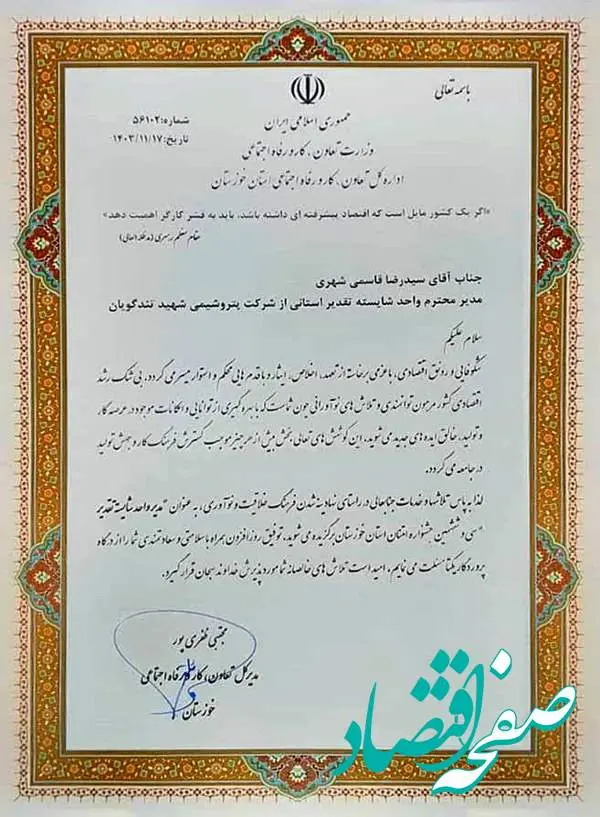 باسمه تعالی
جمهوری اسلامی ایران
وزارت تعاون، کار و رفاه اجتماعی
اداره کل تعاون، کار و رفاه اجتماعی استان خوزستان
شماره:۵۶۱۰۲
تاریخ:۱۴۰۳/۱۱/۱۷
«اگر یک کشور مایل است که اقتصاد پیشرفته ای داشته باشد، باید به قشر کارگر اهمیت دهد»
مقام معظم رهبری (مدظله العالی)
جناب آقای سیدرضا قاسمی شهری
مدیر محترم واحد شایسته تقدیر استانی از شرکت پتروشیمی شهید تندگویان
سلام علیکم
شکوفایی و رونق اقتصادی، با عزمی برخاسته از تعهد، اخلاص، ایثار و با قدم هایی محکم و استوار میسر می گردد. بی شک رشد
اقتصادی کشور مرهون توانمندی و تلاش های نوآورانی چون شماست که با بهره گیری از توانایی و امکانات موجود در عرصه کار
و تولید، خالق ایده های جدید می شوید. این کوشش های تعالی بخش بیش از هر چیز موجب گسترش فرهنگ کار و جهش تولید
در جامعه می گردد.
لذا به پاس تلاشها و خدمات جنابعالی در راستای نهادینه شدن فرهنگ خلاقیت و نوآوری، به عنوان "مدیر واحد شایسته تقدیر
"سی و ششمین جشنواره امتنان استان خوزستان برگزیده می شوید. توفیق روزافزون همراه با سلامتی و سعادتمندی شما را از درگاه
پروردگار یکتا مسئلت می نمایم، امید است تلاش های خالصانه شما مورد پذیرش خداوند سبحان قرار گیرد.
مجتبی ظفری پور
مدیرکل تعاون، کار و رفاه اجتماعی
خوزستان
صفحه اقتصاد